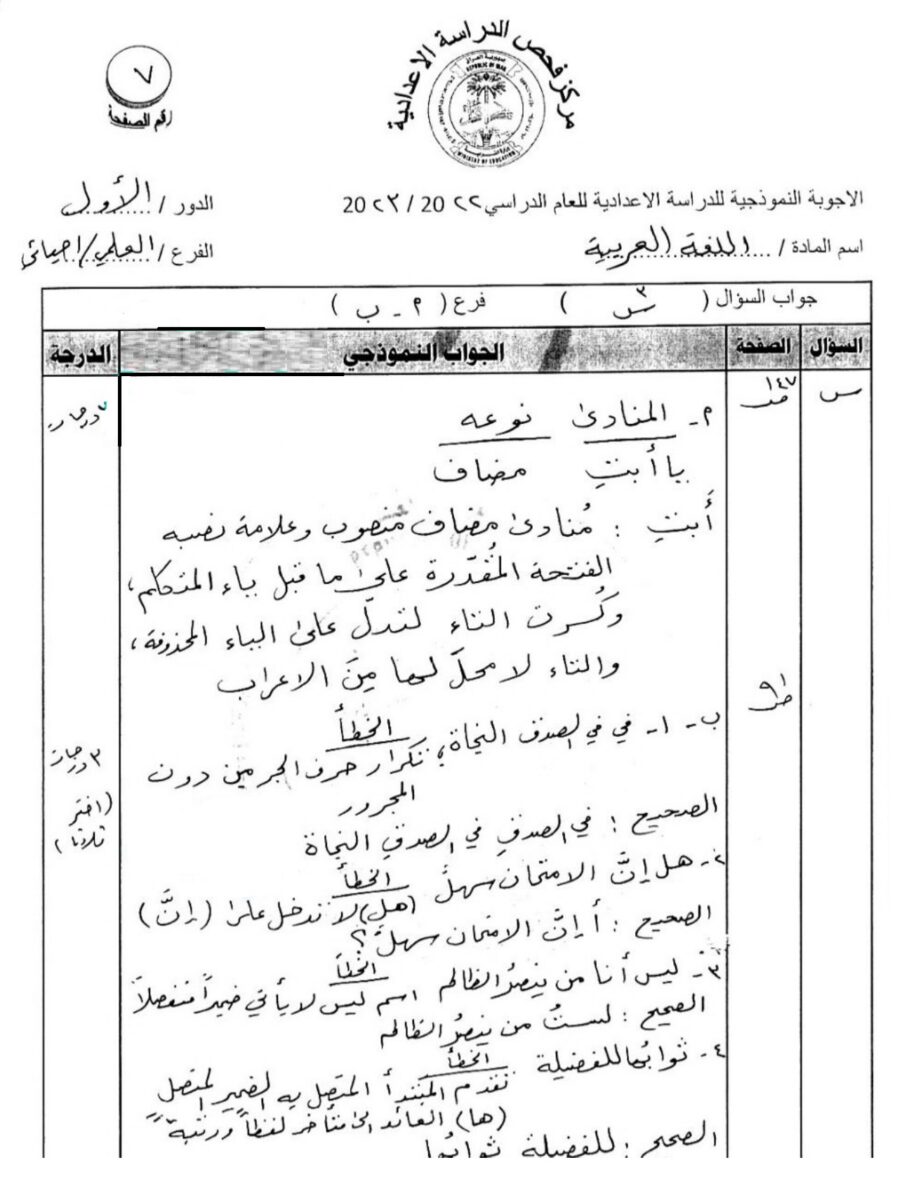 مركز فحص الدراسة الاعدادية
جمهورية العراق
REPUBLIC OF IRAQ
وزارة التربية
MINISTRY OF EDUCATION
٧
رقم الصفحة
الاجوبة النموذجية للدراسة الاعدادية للعام الدراسي ٢٢ 20 / ٢٣ 20
الدور / الأول
اسم المادة / اللغة العربية
الفرع / العلمي/احيائي
جواب السؤال ( س٣ ) فرع ( ٢ - ب )
السؤال الصفحة الجواب النموذجي الدرجة
س ص١٤٧ ٢- المنادىٰ نوعه ٧ درجات
يا أبتِ مضاف
أَبتِ : مُنادىٰ مضاف منصوب وعلامة نصبه
الفتحة المُقدّرة علىٰ ما قبل ياء المتكلم،
وكُسرت التاء لتدلّ علىٰ الياء المحذوفة،
والتاء لا محلّ لها مِنَ الاعراب
ص٩١ ب- ١- في في الصدق النجاة، الخطأ تكرار حرف الجر مِن دون ٣ درجات
المجرور
(اختر
ثلاثا)
الصحيح : في الصدقِ في الصدقِ النجاة
٢- هل إنَّ الامتحان سهلٌ الخطأ (هل) لا تدخل علىٰ (إنَّ)
الصحيح : أ إنَّ الامتحان سهلٌ؟
٣- ليس أنا من ينصرُ الظالم الخطأ اسم ليس لا يأتي ضميراً منفصلاً
الصحيح : لستُ من ينصرُ الظالم
٤- ثوابُها للفضيلة الخطأ تقدم المبتدأ المتصل به الضمير المتصل
(ها) العائد الىٰ متأخر لفظاً ورتبةً
الصحيح : للفضيلة ثوابُها